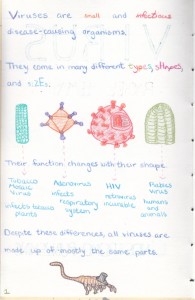 Viruses are small and infectious
disease-causing organisms.
They come in many different types, shapes,
and sizes.
Their function changes with their shape.
Tobacco Mosaic Virus
infects tobacco plants
Adenovirus
infects respiratory system
HIV
retrovirus
incurable
Rabies Virus
infects humans and animals
Despite these differences, all viruses are
made up of mostly the same parts.
1